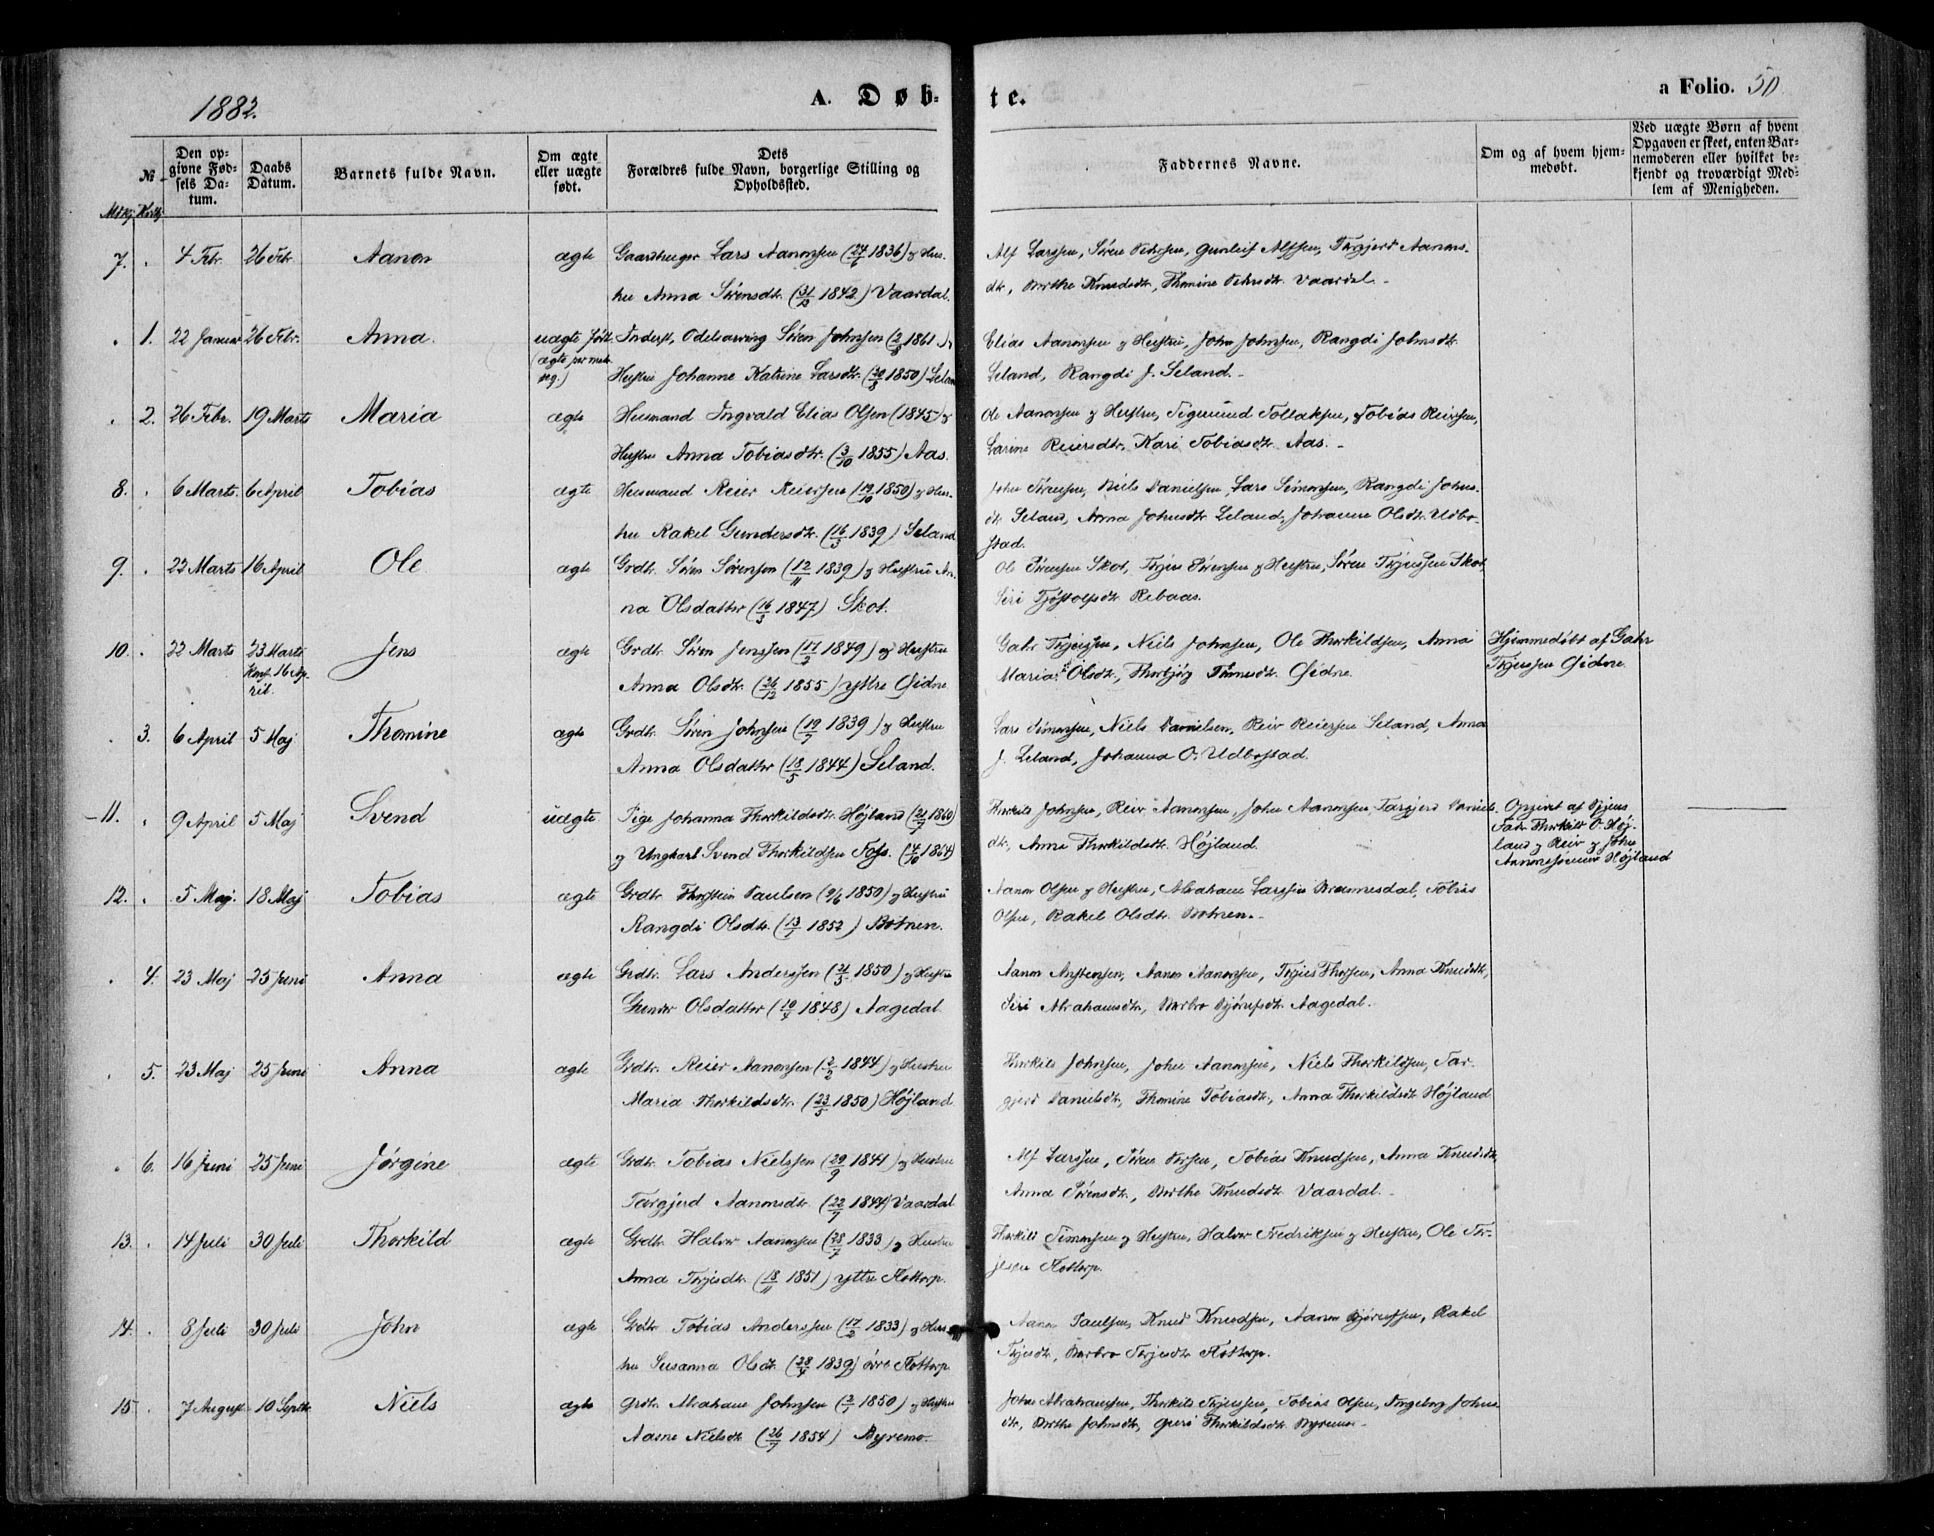 1882.
A. Døb-
te.
a Folio. 50
№
Den op-
givne Fød-
sels Da-
tum.
Daabs
Datum.
Barnets fulde Navn.
Om ægte
eller uægte
født.
Dets
Forældres fulde Navn, borgerlige Stilling og
Opholdssted.
Faddernes Navne.
Om og af hvem hjem-
medøbt.
Ved uægte Børn af hvem
Opgaven er skeet, enten Bar-
nemoderen eller hvilket be-
kjendt og troværdigt Med-
lem af Menigheden.
Mdkj. Kvdkj.
7. 4 Febr. 26 Febr. Aanon ægte Gaardbruger Lars Aanonsen (24/6 1836) og Hus-
tru Anna Sørensdtr. (31/12 1842) Vaardal.
Alf Larssen, Søren Pedersen, Gunleif Alfsen, Torgjerd Aanons-
dtr., Berthe Knudsdtr., Thomine Pedersdtr. Vaardal.
1. 22 Januar 26 Febr. Anna uægte født Inderst, Odelsarving Søren Johnsen (2/8 1861) og
(ægte per mat-
seg.)
Hustru Johanne Katrine Larsdtr. (20/8 1850) Leland
Elias Aanonsen og Hustru, John Johnsen, Rangdi Johnsdtr.
Leland, Rangdi J. Seland.
2. 26 Febr. 19 Marts Maria ægte Husmand Ingvald Elias Olsen (1845) og
Hustru Anna Tobiasdtr. (3/10 1855) Aas.
Ole Aanonsen og Hustru, Sigmund Tollaksen, Tobias Reiersen,
Larine Reiersdtr., Kari Tobiasdtr. Aas.
8. 6 Marts. 6 April Tobias ægte Husmand Reier Reiersen (19/10 1850) og Hus-
tru Rakel Gundersdtr. (16/3 1839) Seland
John Sørensen, Niels Danielsen, Lars Simonsen, Rangdi Johns-
dtr. Seland, Anna Johnsdtr. Leland, Johanne Olsdtr. Udbo-
stad.
9. 22 Marts 16 April Ole ægte Grdbr. Søren Sørensen (12/11 1839) og Hustru An-
na Olsdatter (16/3 1847) Skot.
Ole Sørensen Skot, Terjes Sørensen og Hustru, Søren Terjessen Skot,
Siri Tjøstolfsdtr. Rebaas.
10. 22 Marts 23 Marts Jens ægte Grdbr. Søren Jenssen (17/2 1849) og Hustru
Konf. 16 Ap-
ril.
Anna Olsdtr. (26/12 1855) yttre Øidne
Gahr Terjessen, Niels Johnsen, Ole Thorkildsen, Anna
Maria Olsdtr., Thorbjøg Thomesdtr. Øidne.
Hjemmedøbt af Gahr
Terjessen Øidne.
3. 6 April 5 Maj Thomine ægte Grdbr. Søren Johnsen (19/7 1839) og Hustru
Anna Olsdatter (18/5 1844) Leland.
Lars Simonsen, Niels Danielsen, Reier Reiersen Leland, Anna
J. Leland, Johanna O. Udbostad.
11. 9 April 5 Maj Svend uægte. Pige Johanna Thorkildsdtr. Højland (21/7 1860)
og Ungkarl Svend Thorkildsen Foss. (4/10 1864)
Thorkild Johnsen, Reier Aanonsen, John Aanonsen, Targjerd Daniels-
dtr., Anna Thorkildsdtr. Højland.
Opgivet af Pigens
Fader Thorkild O. Høj-
land og Reier og John
Aanonsønner Højland
12. 5 Maj. 18 Maj Tobias ægte Grdbr. Thorstein Paulsen (9/6 1850) og Hustru
Rangdi Olsdtr. (13/7 1852) Botnen.
Aanon Olsen og Hustru, Abraham Larssen Brommesdal, Tobias
Olsen, Rakel Olsdtr. Botnen.
4. 23 Maj 25 Juni Anna ægte Grdbr. Lars Anderssen (21/5 1850) og Hustru
Gunvor Olsdatter (10/7 1848) Aagedal.
Aanon Anstensen, Aanon Aanonsen, Terjes Thorsen, Anna Knudsdtr.,
Siri Abrahamsdtr., Barbro Bjørufsdtr. Aagedal.
5. 23 Maj 25 Juni Anna ægte Grdbr. Reier Aanonsen (2/2 1844) og Hustru
Maria Thorkildsdtr. (23/5 1850) Højland
Thorkild Johnsen, John Aanonsen, Niels Thorkildsen, Tar-
gjerd Danielsdtr., Thomine Tobiasdtr., Anna Thorkildsdtr. Højland
6. 16 Juni 25 Juni Jørgine ægte Grdbr. Tobias Nielssen (29/9 1841) og Hustru
Targjerd Aanonsdtr. (22/7 1844) Vaardal
Alf Larssen, Søren Persen, Tobias Knudsen, Anna Knudsdtr,
Anna Sørensdtr., Berthe Knudsdtr. Vaardal.
13. 14 Juli 30 Juli Thorkild ægte Grdbr. Halvor Aanonsen (28/7 1833) og Hustru
Anna Terjesdtr. (18/11 1851) yttre Flottorp.
Thorkild Simonsen og Hustru, Halvor Fredriksen og Hustru, Ole Ter-
jesen Flottorp.
14. 8 Juli 30 Juli John ægte Grdbr. Tobias Anderssen (17/2 1833) og Hus-
tru Susanna Olsdtr. (28/4 1839) øvre Flottorp.
Aanon Paulsen, Knud Knudsen, Aanon Bjørufsen, Rakel
Terjesdtr., Barbro Terjesdtr. Flottorp.
15. 7 August 10 Septbr. Niels ægte Grdbr. Abraham Johnsen (2/1 1850) og Hustru
Aasne Nielsdtr. (26/7 1854) Byremo.
John Abrahamsen, Thorkild Terjessen, Tobias Olsen, Ingeborg Johns-
dtr., Berthe Johnsdtr., Guri Thorkildsdtr. Byremo.